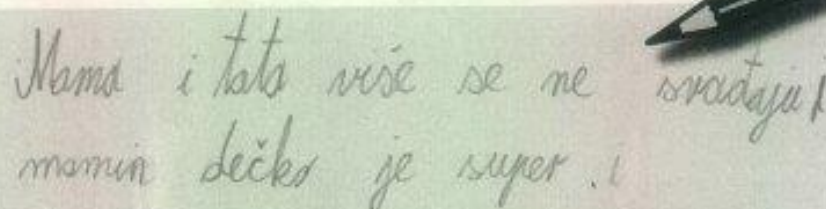 Mama i tata više se ne svađaju i
mamin dečko je super. i